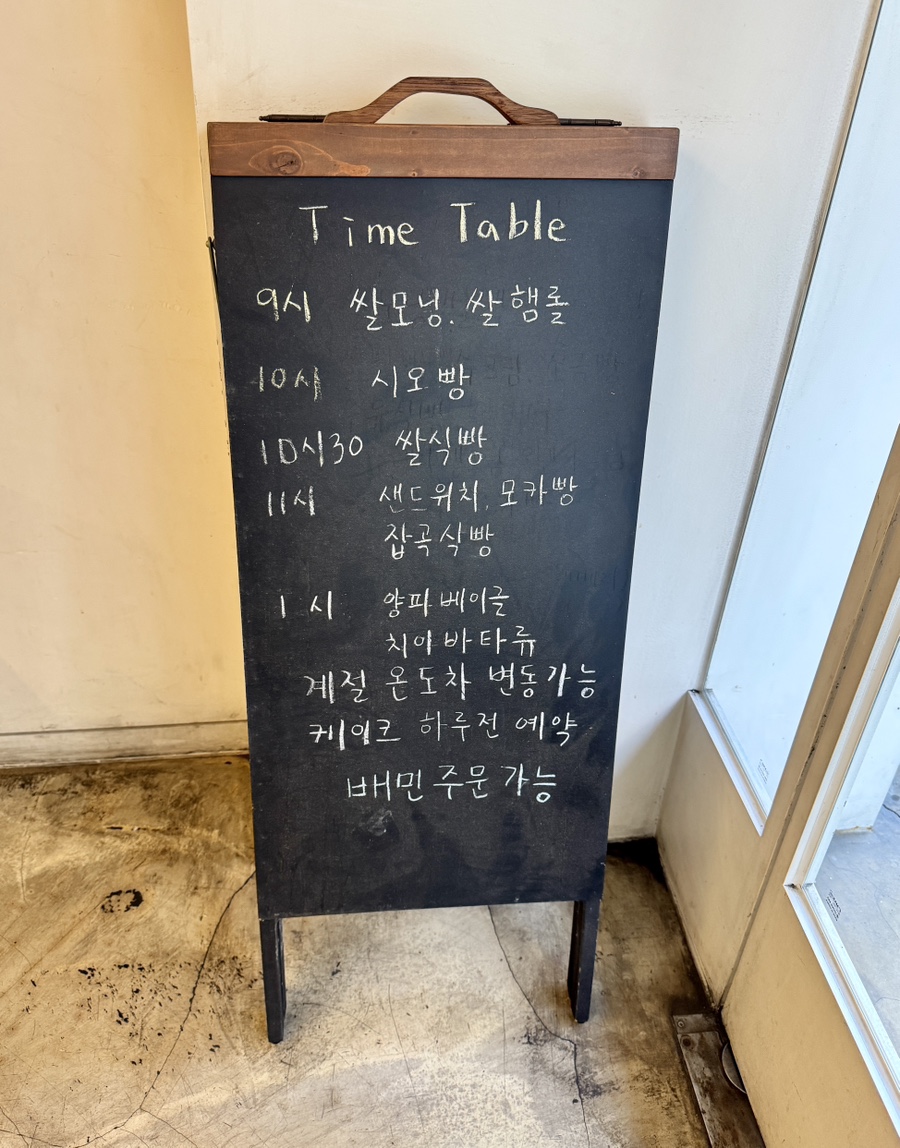 Time Table
9시 쌀모닝. 쌀햄롤
10시 시오빵
10시30 쌀식빵
11시 샌드위치, 모카빵
잡곡식빵
1시 양파베이글
치아바타류
계절 온도차 변동가능
케이크 하루전 예약
배민주문가능